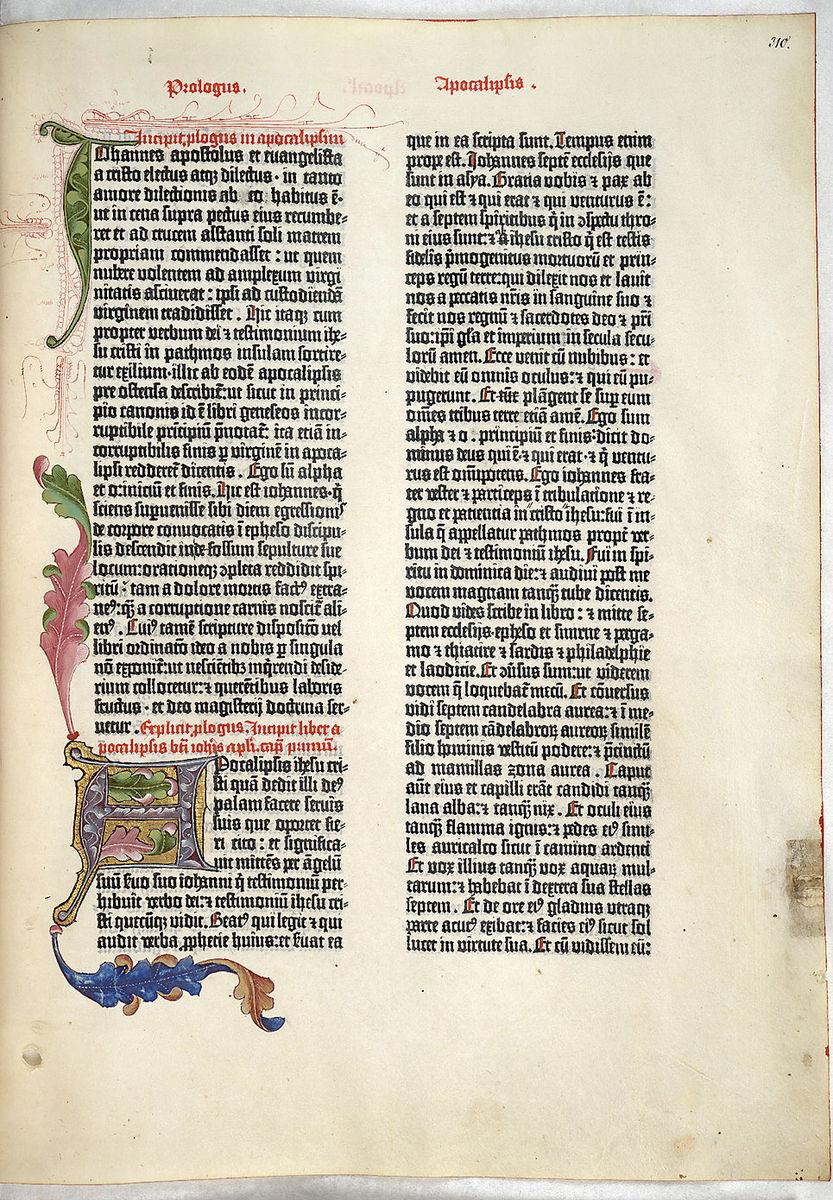 310.
Prologus.
Apocalipsis.
Incipit plogus in apocalipsim
Johannes apostolus et euangelista
a cristo electus atqꝫ dilectus · in tanto
amore dilectionis ab eo habitus ē·
ut in cena supra pectus eius recumbe-
ret et ad crucem astanti soli matrem
propriam commendasset : ut quem
nubere volentem ad amplexum virgi
nitatis asciuerat : ipsi ad custodiendā
virginem tradidisset . Hic itaqꝫ cum
propter verbum dei ⁊ testimonium ihe-
su cristi in pathmos insulam sortire-
tur exilium·illic ab eodē apocalipsis
pre ostensa describit̄:ut sicut in princi-
pio canonis id ē libri geneseos incor-
ruptibile prīcipiū p̄notat̄: ita etiā in-
corruptibilis finis ꝑ virginē in apoca-
lipsi redderet̄ dicentis . Ego sū alpha
et o:iniciū et finis. Hic est iohannes·q̄
sciens supuenisse sibi diem egressionis
de corpore conuocatis ī epheso discipu-
lis descendit inde fossum sepulture sue
locum:orationeqꝫ ꝯpleta reddidit spi-
ritū : tam a dolore mortis factꝰ extra-
neꝰ:qꝫ a corruptione carnis noscit̄ ali-
enꝰ . Cuiꝰ tamē scripture dispositō vel
libri ordinatō ideo a nobis ꝑ singula
nō exponit̄:ut nescientibꝫ inq̄rendi deside-
rium collocetur:⁊ querētibus laboris
fructus · et deo magisterij doctrina ser-
uetur . Explicit plogus. Incipit liber a
pocalipsis btī iohīs apli. capm̄ primū.
Apocalipsis ihesu cri-
sti quā dedit illi deꝰ
palam facere seruis
suis que oportet fie-
ri cito : et significa-
uit mittēs per āgelū
suū ẜuo suo iohanni q̄ testimoniū per-
hibuit verbo dei:⁊ testimoniū ihesu cri-
sti quecūqꝫ vidit. Beatꝰ qui legit ⁊ qui
audit verba ꝓphecie huius:et ẜuat ea
que in ea scripta sunt. Tempus enim
prope est. Johannes septē ecclesijs que
sunt in asya. Gratia vobis ⁊ pax ab
eo qui est ⁊ qui erat ⁊ qui venturus ē:
et a septem spiritibus q̄ in ꝯspectu thro-
ni eius sunt:⁊ a ihesu cristo q̄ est testis
fidelis p̄mogenitus mortuorū et prin-
ceps regū terre:qui dilexit nos et lauit
nos a peccatis nr̄is in sanguine suo ⁊
fecit nos regnū ⁊ sacerdotes deo ⁊ pr̄i
suo:ipī gl̄a et imperium in secula secu-
lorū amen. Ecce venit cū nubibus : et
videbit eū omnis oculus:⁊ qui eū pu-
pugerunt. Et tūc plāgent se suꝑ eum
om̄es tribus terre etiā amē. Ego sum
alpha ⁊ o . principiū et finis:dicit do-
minus deus qui ē·⁊ qui erat·⁊ q̄ ventu-
rus est om̄ipotens. Ego iohannes fra-
ter vester ⁊ particeps ī tribulatione ⁊ re-
gno et patientia in cristo ihesu:fui ī in-
sula q̄ appellatur pathmos propt̄ ver-
bum dei ⁊ testimoniū ihesu. Fui in spi-
ritu in dominica die:⁊ audiui post me
vocem magnam tanqꝫ tube dicentis.
Quod vides scribe in libro : ⁊ mitte se-
ptem ecclesijs·epheso et smirne ⁊ perga-
mo ⁊ thiatire ⁊ sardis ⁊ philadelphie
et laodicie. Et ꝯuersus sum:ut viderem
vocem q̄ loquebat̄ mecū. Et cōuersus
vidi septem candelabra aurea:⁊ ī me-
dio septem cādelabroꝝ aureoꝝ similē
filio hominis vestitū podere:⁊ p̄cinctū
ad mamillas zona aurea . Caput
aūt eius et capilli erāt candidi tanqꝫ
lana alba:⁊ tanqꝫ nix . Et oculi eius
tanqꝫ flamma ignis:⁊ pedes eiꝰ simi-
les auricalco sicut ī camino ardenti
Et vox illius tanqꝫ vox aquaꝝ mul-
tarum:⁊ habebat ī dextera sua stellas
septem . Et de ore eiꝰ gladius vtraqꝫ
parte acutꝰ exibat:⁊ facies eiꝰ sicut sol
lucet in virtute sua. Et cū vidissem eū: